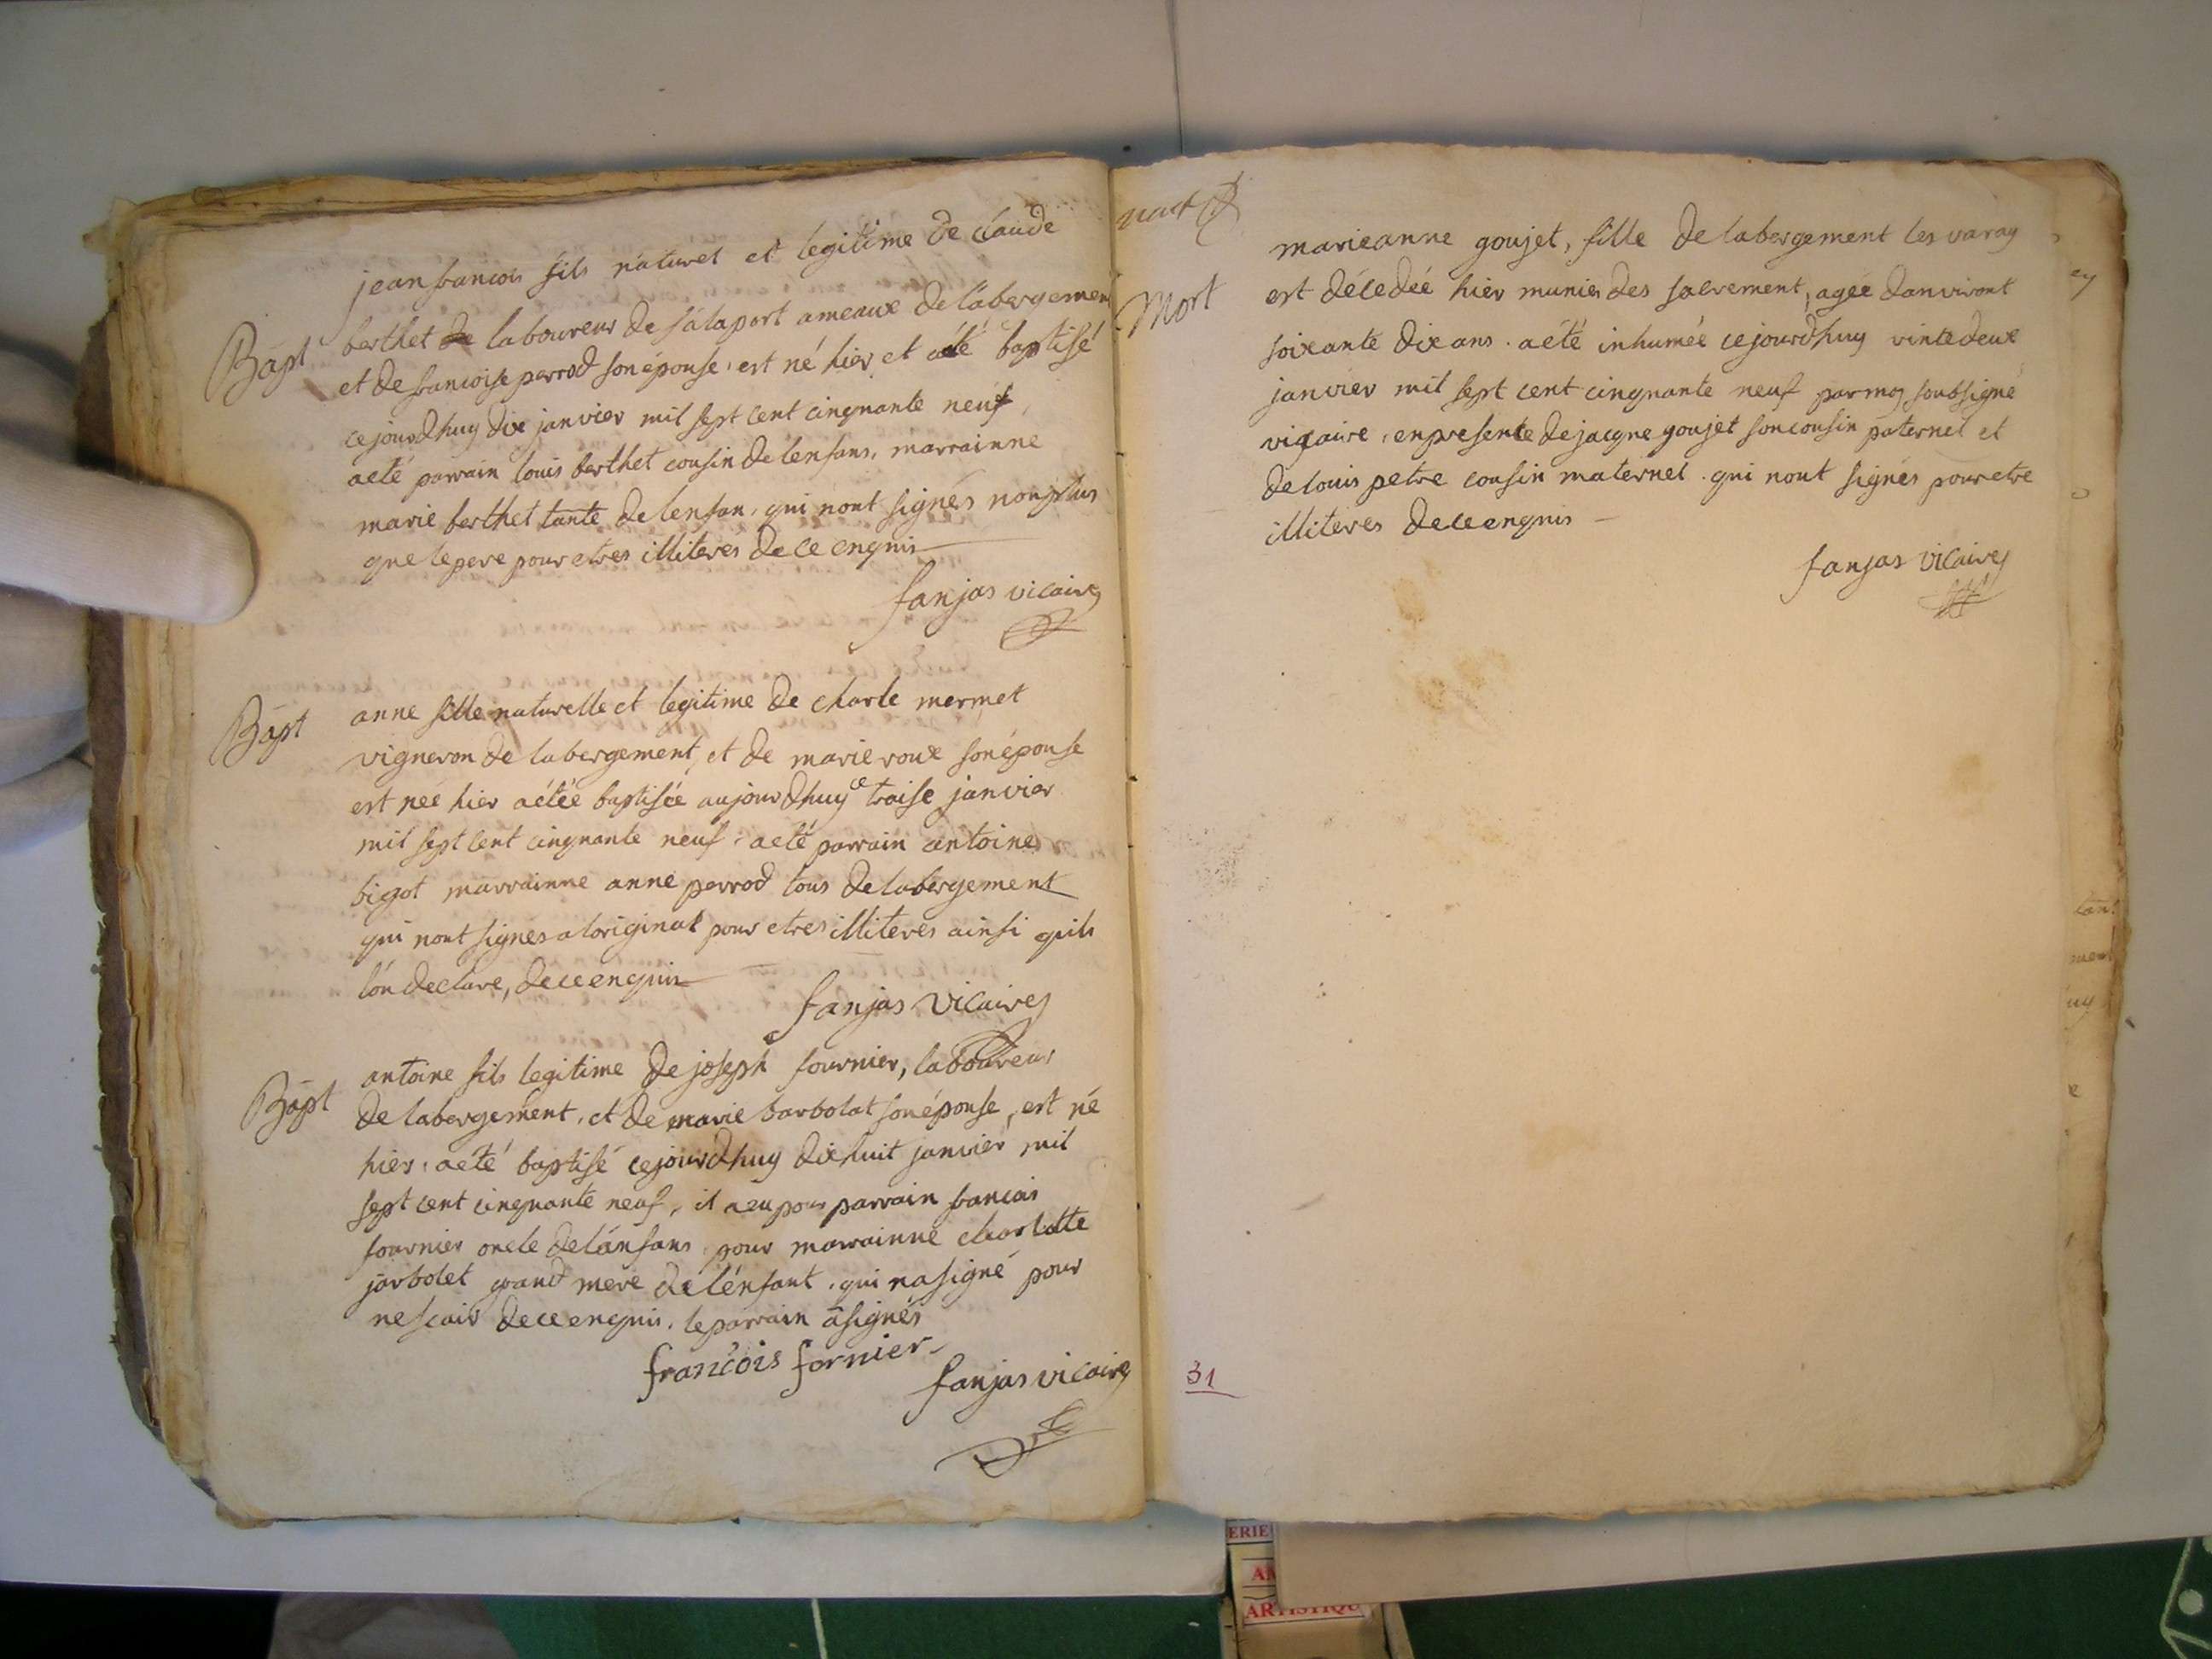 jean francois fils naturel et legitime de claude
Bapt
berthet de laboureur de salaport ameaux de labergement
et de francoise perrod son épouse, est né hier et aété baptisé
cejourdhuy dix janvier mil sept cent cinquante neuf,
aeté parrain louis berthet cousin de lenfans, marrainne
marie berthet tante de lenfan, qui nont signés nonplus
que le pere pour etres illiteres de ce enquis
fanjas vicaire
Bapt
anne fille naturelle et legitime de charle mermet
vigneron de labergement, et de marie roux son épouse
est neé hier aétée baptisée aujourdhuy ce traise janvier
mil sept cent cinquante neuf, aeté parrain antoine
bigot marrainne anne perrod tous de labergement
qui nont signes a loriginal pour etres illiteres ainsi quils
lon declare, de ce enquis
fanjas vicaire
Bapt
antoine fils legitime de joseph fournier, laboureur
de labergement, et de marie barbolat son épouse, est né
hier, aété baptisé cejourdhuy dix huit janvier mil
sept cent cinquante neuf, il a eu pour parrain francois
fournier oncle de lánfans, pour marrainne charlotte
jarbolet grand mere de lénfant, qui nasigné pour
nescair de ce enquis, le parrain a signés
francois fornier
fanjas vicaire
Mort
marieanne goujet, fille de labergement les varay
est décedée hier munies des sacrement, ageé danviront
soixante dix ans. aété inhumée cejourdhuy vinte deux
janvier mil sept cent cinquante neuf par moy soubsigné
vicaire, en presente de jacque goujet son cousin paternel et
de louis petre cousin maternel. qui nont signés pour etre
illiteres de ce enquis
fanjas vicaire
31
ERIE
ARTISTIQU